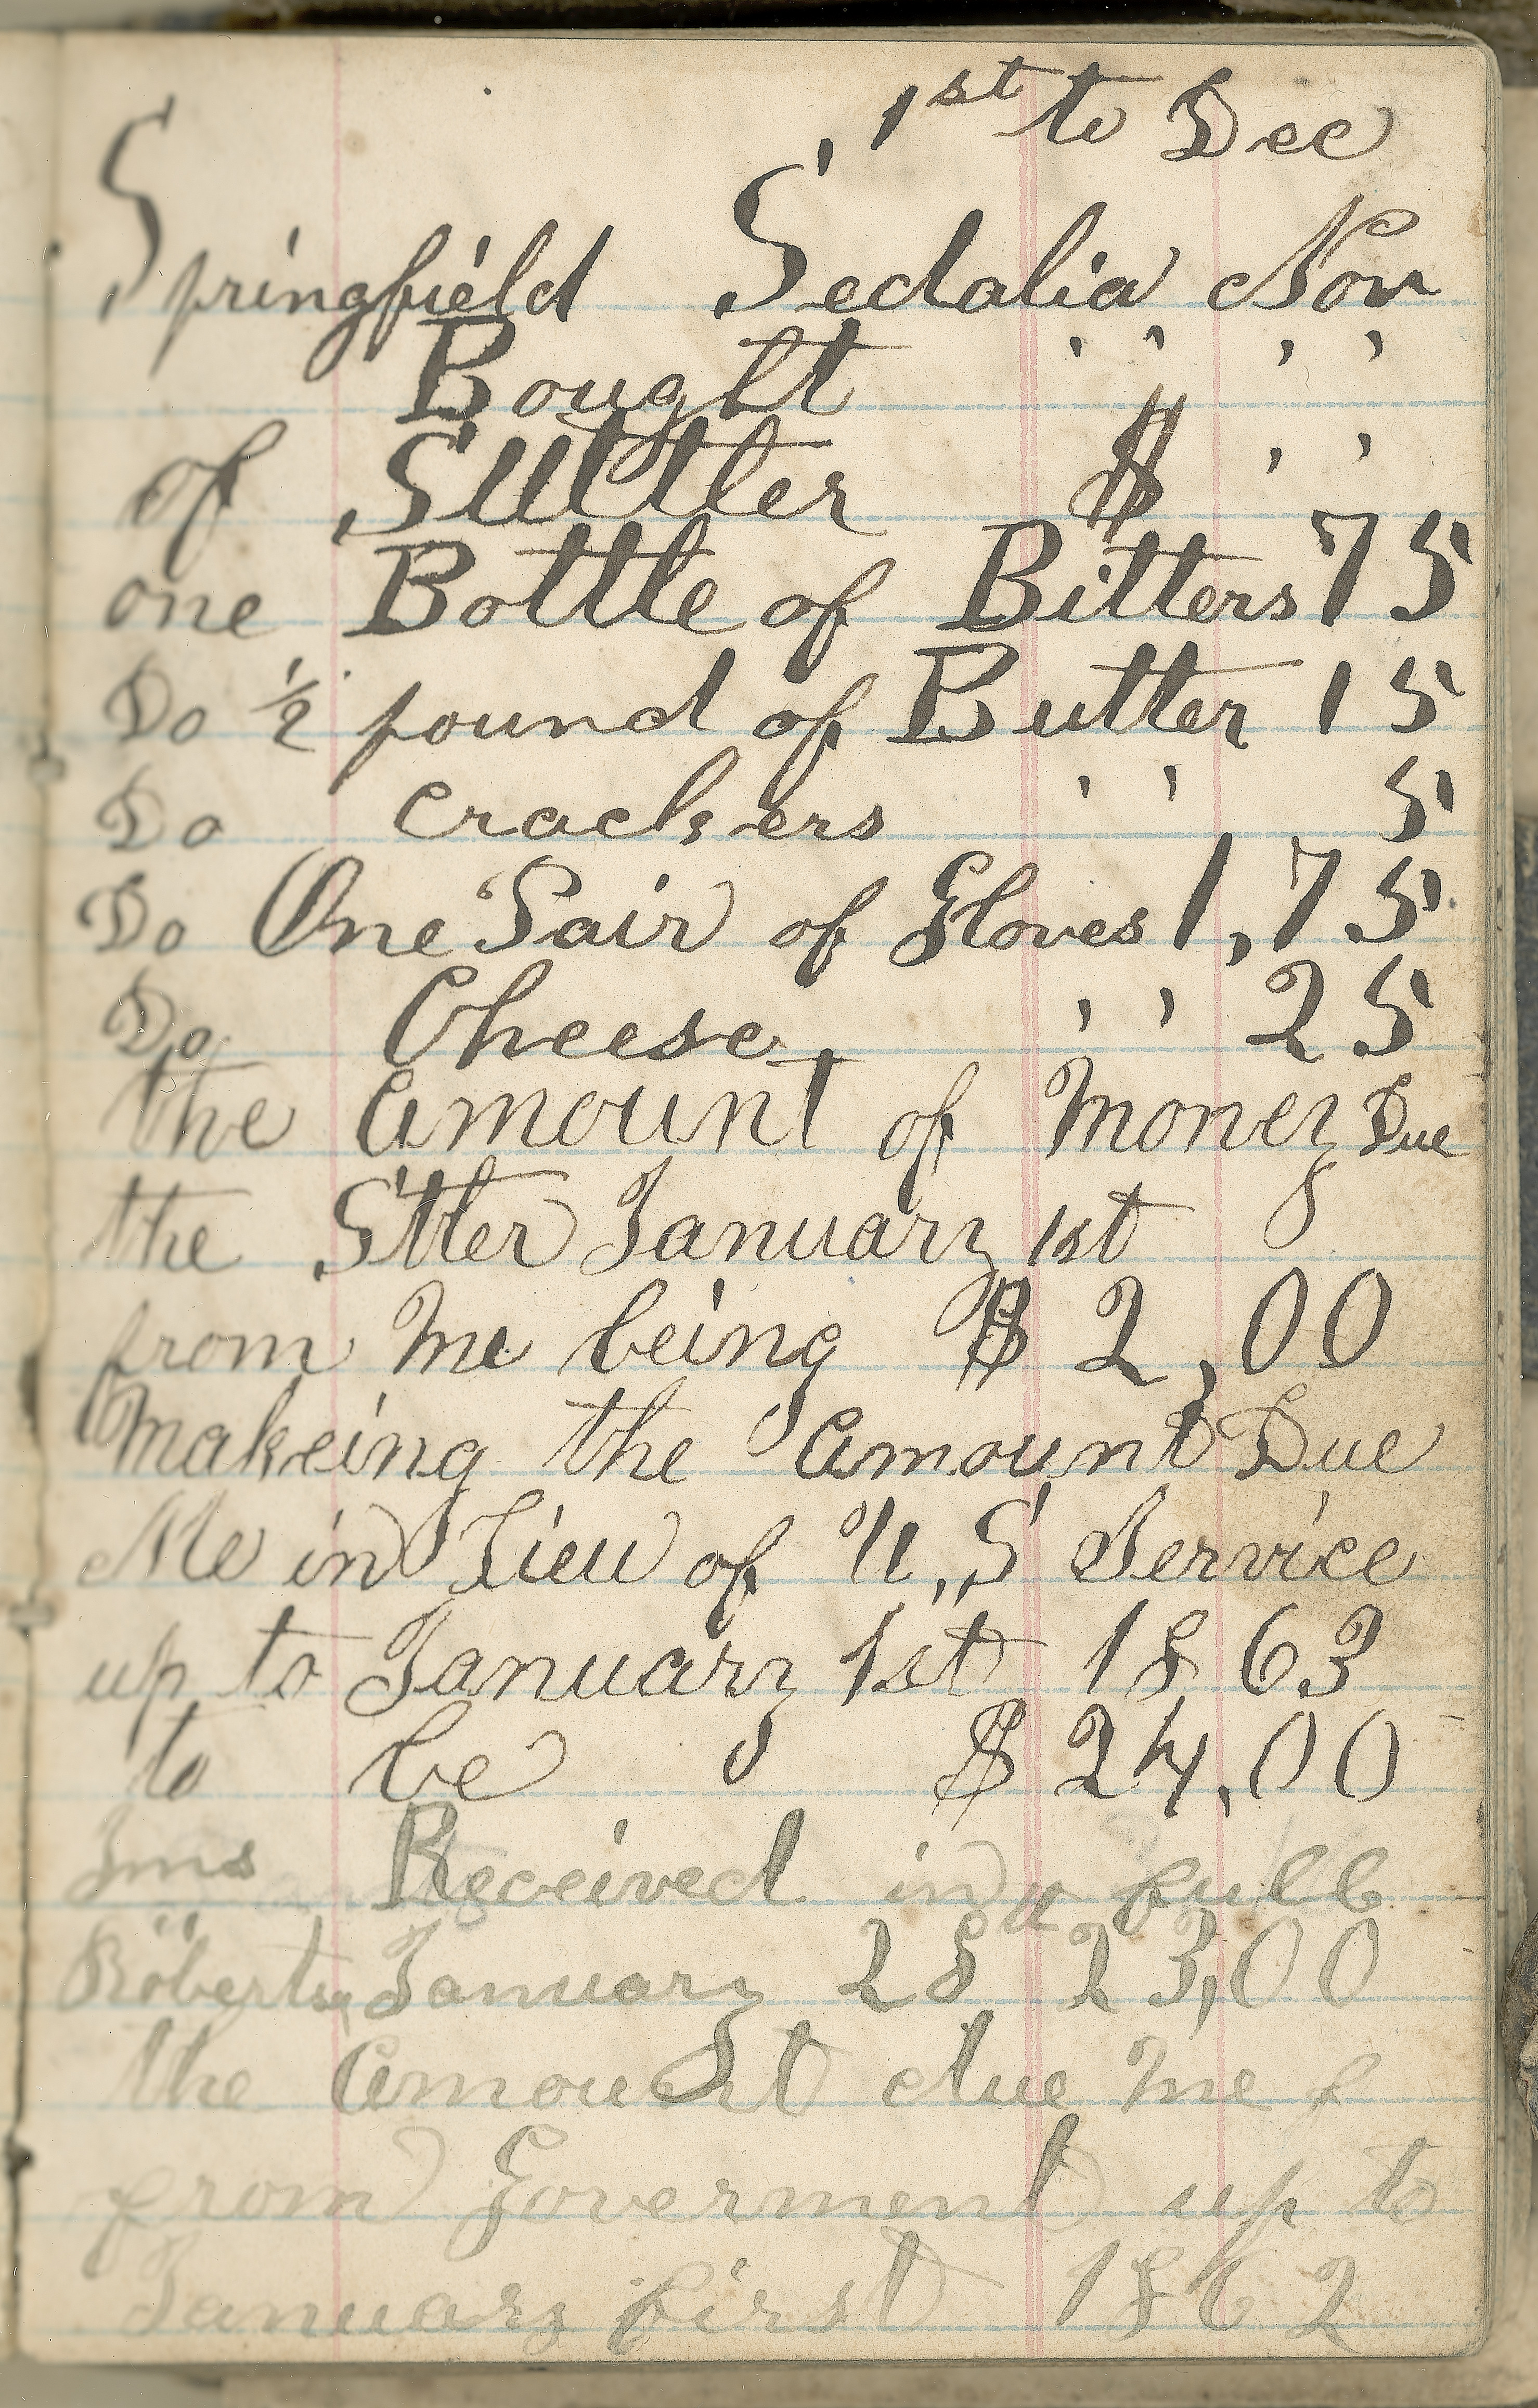 1st to Dec
Springfield Sedalia Nov
Bought , , , ,
of Suttler $ , ,
one Bottle of Bitters 75
Do ½ pound of Butter 15
Do crackers , , 5
Do One Pair of Gloves 1,75
Do Cheese , , 25
the amount of Money Due
the Sttler January 1st
from Me being $ 2,00
Makeing the amount Due
Me in Lieu of U,S Service
up to January 1st 1863
to be $ 24,00
Jms Received in full
Roberts January 28 23,00
the amount due Me f
from Goverment up to
January first 1862